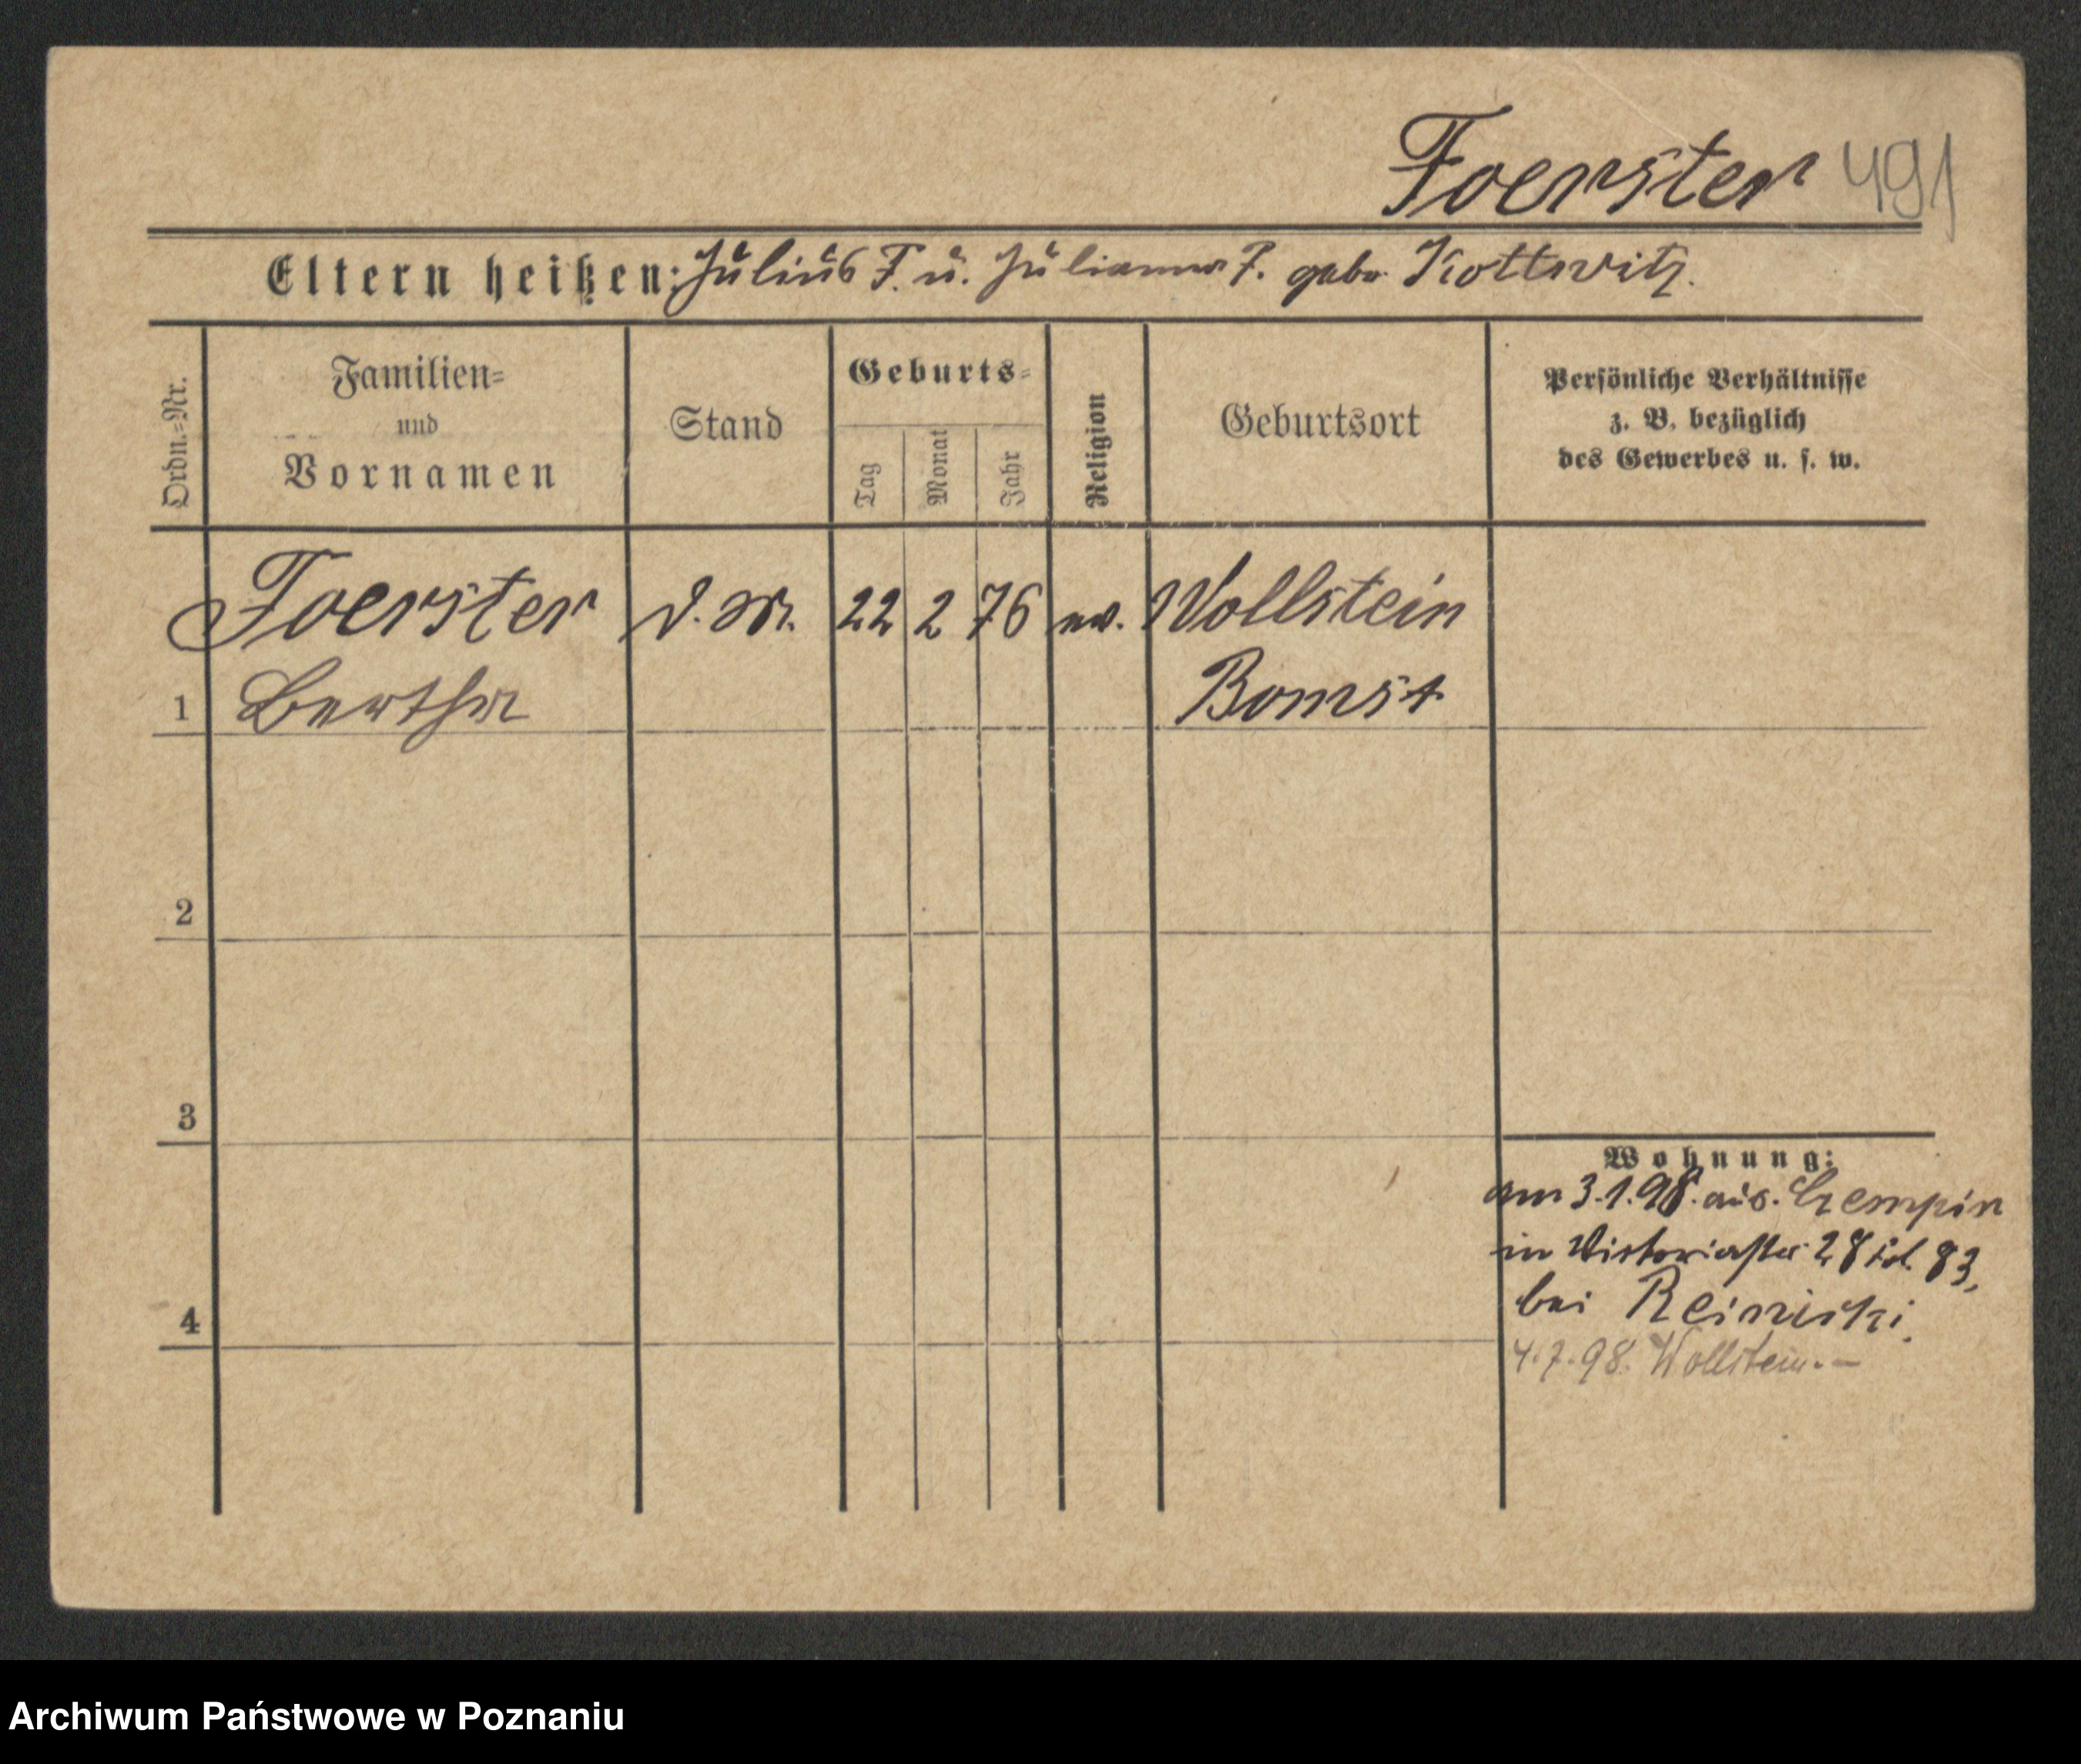 Foerster 491
Eltern heißen: Julius F. u. Julianna F. geb. Kottwitz.
Ordn.=Nr.
Familien=
und
Vornamen
Stand
Geburts=
Tag
Monat
Jahr
Religion
Geburtsort
Persönliche Verhältnisse
z. B. bezüglich
des Gewerbes u. s. w.
Foerster 22 2 76 ev. Wollstein
1 Bertha Bomst
2
3
4
Wohnung:
am 3.1.98. aus. Czempin
in Victoriastr. 28 83,
bei
4.7.98. Wollstein.-
Archiwum Państwowe w Poznaniu